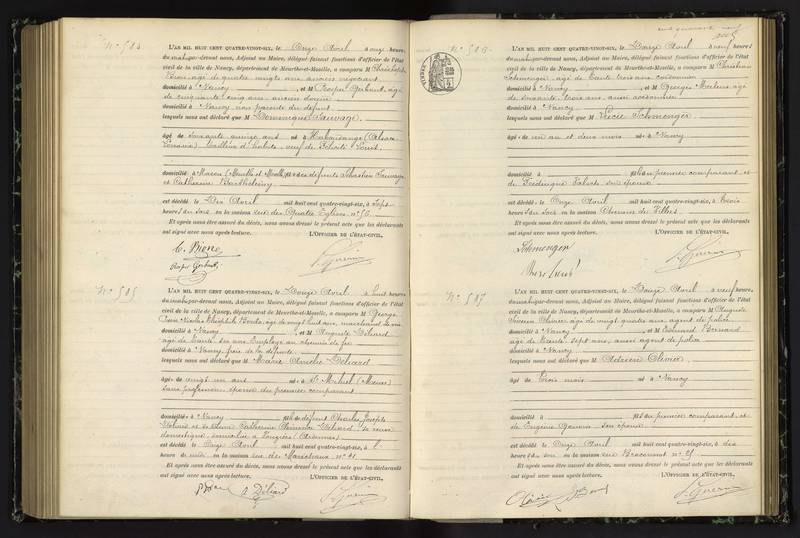 N° 584
L'AN MIL HUIT CENT QUATRE-VINGT-SIX, le Onze Avril à onze heures
du matin par-devant nous, Adjoint au Maire, délégué faisant fonctions d'officier de l'état
civil de la ville de Nancy, département de Meurthe-et-Moselle, a comparu M Christophe
âgé de quatre vingts ans, ancien négociant
domicilié à Nancy, et M Prosper Gerbaut, âgé
de cinquante cinq ans,
domicilié à Nancy, non parents du défunt
lesquels nous ont déclaré que M Dominique Sauvage
âgé de soixante quinze ans né à (Alsace
Lorraine) tailleur d'habits, veuf de Félicité
domicilié à (Meurthe et Moselle) fils des défunts Sébastien Sauvage
et Catherine Barthélemy
est décédé le Dix Avril mil huit cent quatre-vingt-six, à sept
heures du soir en la maison rue des Quatre Eglises, n° 56
Et après nous être assuré du décès, nous avons dressé le présent acte que les déclarants
ont signé avec nous après lecture. L'OFFICIER DE L'ÉTAT-CIVIL,
N° 585
L'AN MIL HUIT CENT QUATRE-VINGT-SIX, le Douze Avril à huit heures
du matin par-devant nous, Adjoint au Maire, délégué faisant fonctions d'officier de l'état
civil de la ville de Nancy, département de Meurthe-et-Moselle, a comparu M George
Nicolas Théophile âgé de vingt huit ans, marchand de vin
domicilié à Nancy, et M Auguste Déliard
âgé de trente six ans Employé au chemin de fer
domicilié à Nancy, frère de la défunte
lesquels nous ont déclaré que Marie Amélie Déliard
âgée de vingt un ans née à St Mihiel (Meuse)
sans profession épouse du premier comparant
domiciliée à Nancy fille de défunt Charles Joseph
Déliard et de Catherine Clémence
domestique, domiciliée à Vouziers (Ardennes)
est décédé le Onze Avril mil huit cent quatre-vingt-six, à
heures de midi en la maison rue des Maréchaux n° 41
Et après nous être assuré du décès, nous avons dressé le présent acte que les déclarants
ont signé avec nous après lecture. L'OFFICIER DE L'ÉTAT-CIVIL,
A Déliard
N° 586
L'AN MIL HUIT CENT QUATRE-VINGT-SIX, le Douze Avril à neuf heures
du matin par-devant nous, Adjoint au Maire, délégué faisant fonctions d'officier de l'état
civil de la ville de Nancy, département de Meurthe-et-Moselle, a comparu M Christian
Schmenger, âgé de trente trois ans cordonnier
domicilié à Nancy, et M Georges
de soixante trois ans, aussi cordonnier
domicilié à Nancy
lesquels nous ont déclaré que M Lucie Schmenger
âgée de un an et deux mois née à Nancy
domicilié à fille du premier comparant et
de Frédérique son épouse
est décédé le Onze Avril mil huit cent quatre-vingt-six, à trois
heures du soir en la maison Chemin de Villers
Et après nous être assuré du décès, nous avons dressé le présent acte que les déclarants
ont signé avec nous après lecture. L'OFFICIER DE L'ÉTAT-CIVIL,
Schmenger
N° 587
L'AN MIL HUIT CENT QUATRE-VINGT-SIX, le Douze Avril à neuf heures
du matin par-devant nous, Adjoint au Maire, délégué faisant fonctions d'officier de l'état
civil de la ville de Nancy, département de Meurthe-et-Moselle, a comparu M Auguste
Olivier, âgé de vingt quatre ans agent de police
domicilié à Nancy, et M Edouard Bernard
âgé de trente sept ans, aussi agent de police
domicilié à Nancy
lesquels nous ont déclaré que M Adrien Olivier
âgé de trois mois né à Nancy
domicilié à fils du premier comparant et
de Eugénie son épouse
est décédé le Onze Avril mil huit cent quatre-vingt-six, à dix
heures du soir en la maison rue Braconnot n° 25
Et après nous être assuré du décès, nous avons dressé le présent acte que les déclarants
ont signé avec nous après lecture. L'OFFICIER DE L'ÉTAT-CIVIL,
Olivier